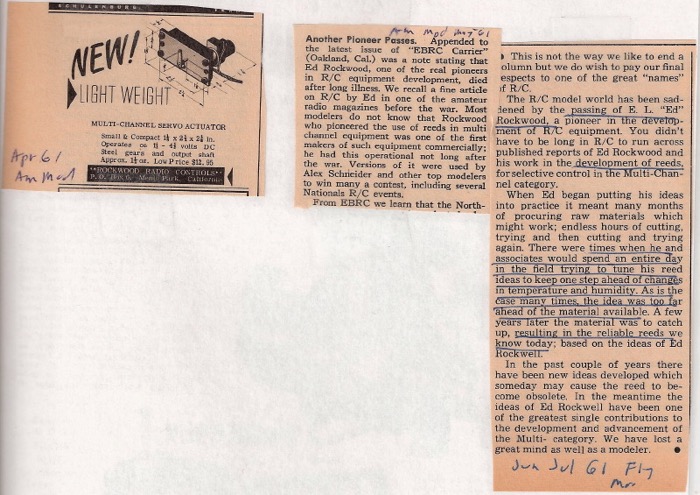 SCHULENBURG,
NEW!
LIGHT WEIGHT
MULTI-CHANNEL SERVO ACTUATOR
Small & Compact
Operates on
volts DC
Steel gears and output shaft
Approx. 1½ oz. Low Price $12.95
ROCKWOOD RADIO CONTROLS
Menlo Park, California
Apr 61
Am Mod
Am Mod May 61
Another Pioneer Passes. Appended to
the latest issue of "EBRC Carrier"
(Oakland, Cal.) was a note stating that
Ed Rockwood, one of the real pioneers
in R/C equipment development, died
after long illness. We recall a fine article
on R/C by Ed in one of the amateur
radio magazines before the war. Most
modelers do not know that Rockwood
who pioneered the use of reeds in multi
channel equipment was one of the first
makers of such equipment commercially;
he had this operational not long after
the war. Versions of it were used by
Alex Schneider and other top modelers
to win many a contest, including several
Nationals R/C events.
From EBRC we learn that the North-
• This is not the way we like to end a
olumn but we do wish to pay our final
espects to one of the great "names"
f R/C.
The R/C model world has been sad-
dened by the passing of E. L. "Ed"
Rockwood, a pioneer in the develop-
ment of R/C equipment. You didn't
have to be long in R/C to run across
published reports of Ed Rockwood and
his work in the development of reeds,
for selective control in the Multi-Chan-
nel category.
When Ed began putting his ideas
into practice it meant many months
of procuring raw materials which
might work; endless hours of cutting,
trying and then cutting and trying
again. There were times when he and
associates would spend an entire day
in the field trying to tune his reed
ideas to keep one step ahead of changes
in temperature and humidity. As is the
case many times, the idea was too far
ahead of the material available. A few
years later the material was to catch
up, resulting in the reliable reeds we
know today; based on the ideas of Ed
Rockwell.
In the past couple of years there
have been new ideas developed which
someday may cause the reed to be-
come obsolete. In the meantime the
ideas of Ed Rockwell have been one
of the greatest single contributions to
the development and advancement of
the Multi- category. We have lost a
great mind as well as a modeler. •
Jun Jul 61 Fly